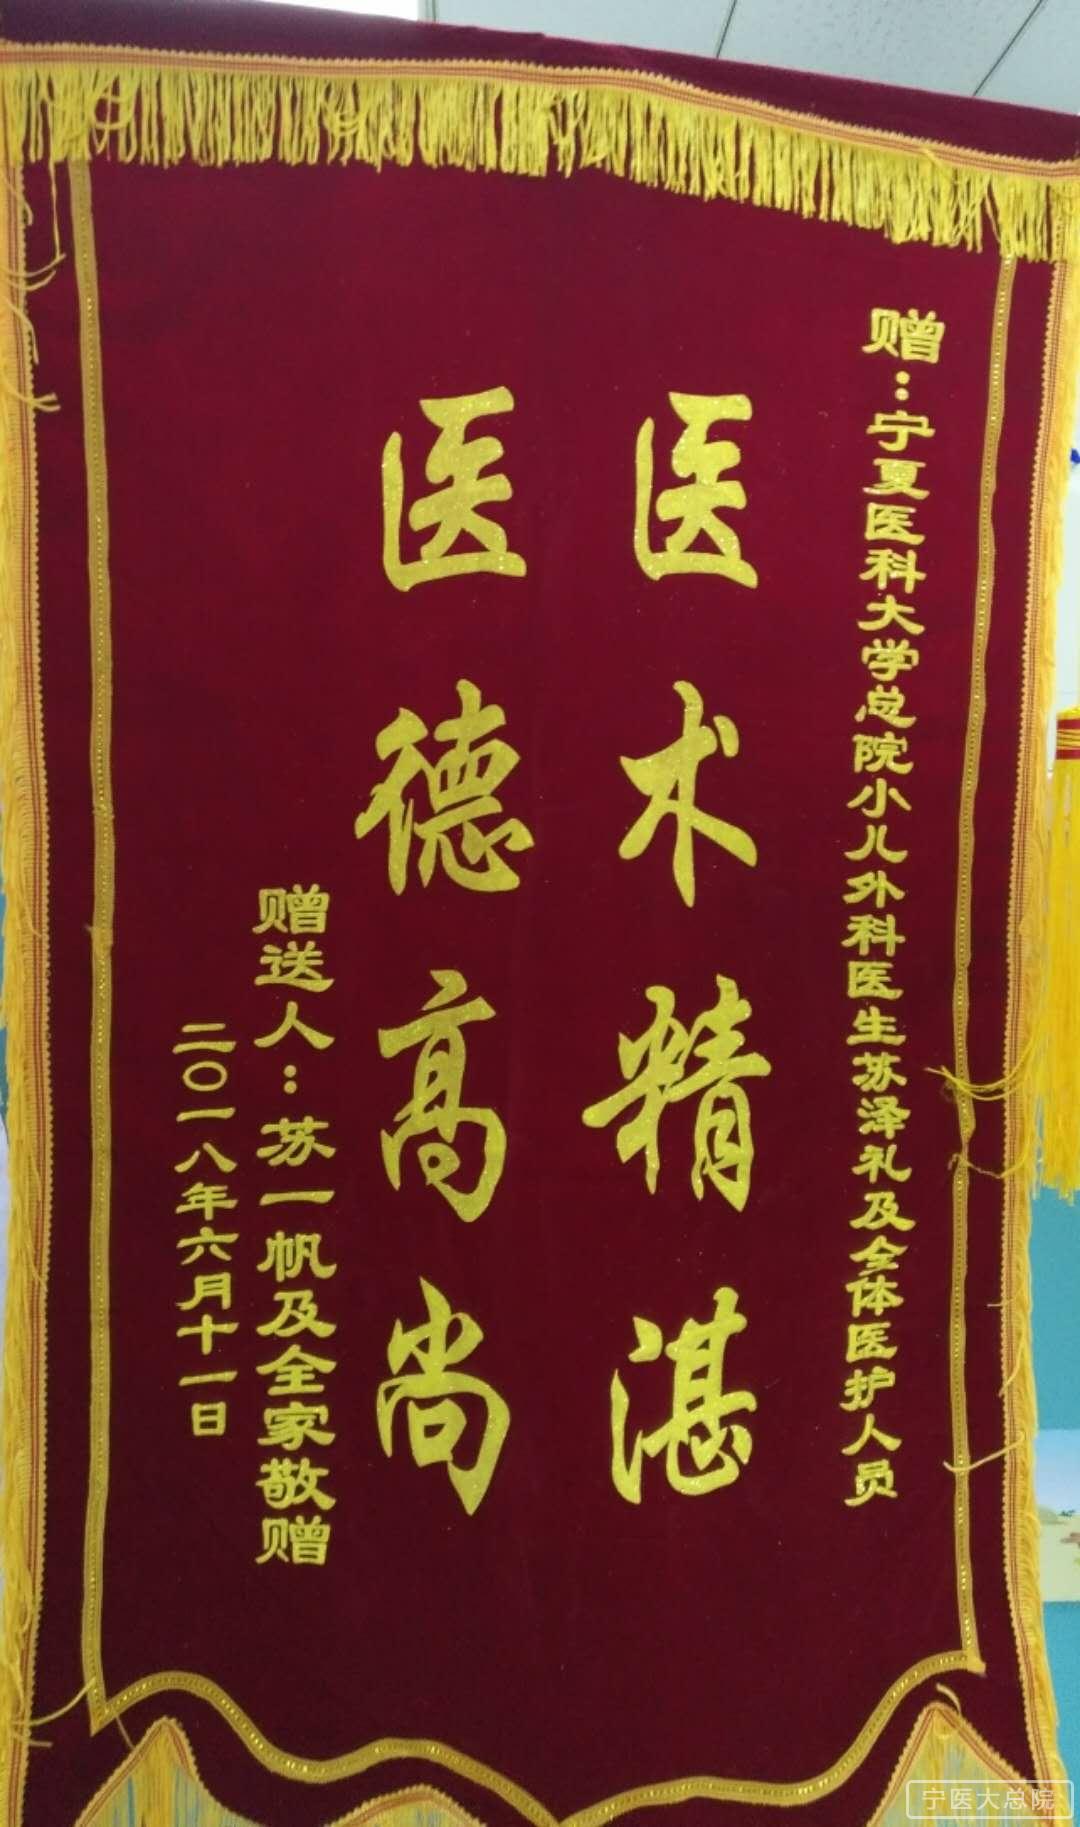 赠：宁夏医科大学总院小儿外科医生苏泽礼及全体医护人员
医术精湛
医德高尚
赠送人：苏一帆及全家敬赠
二〇一八年六月十一日
宁医大总院